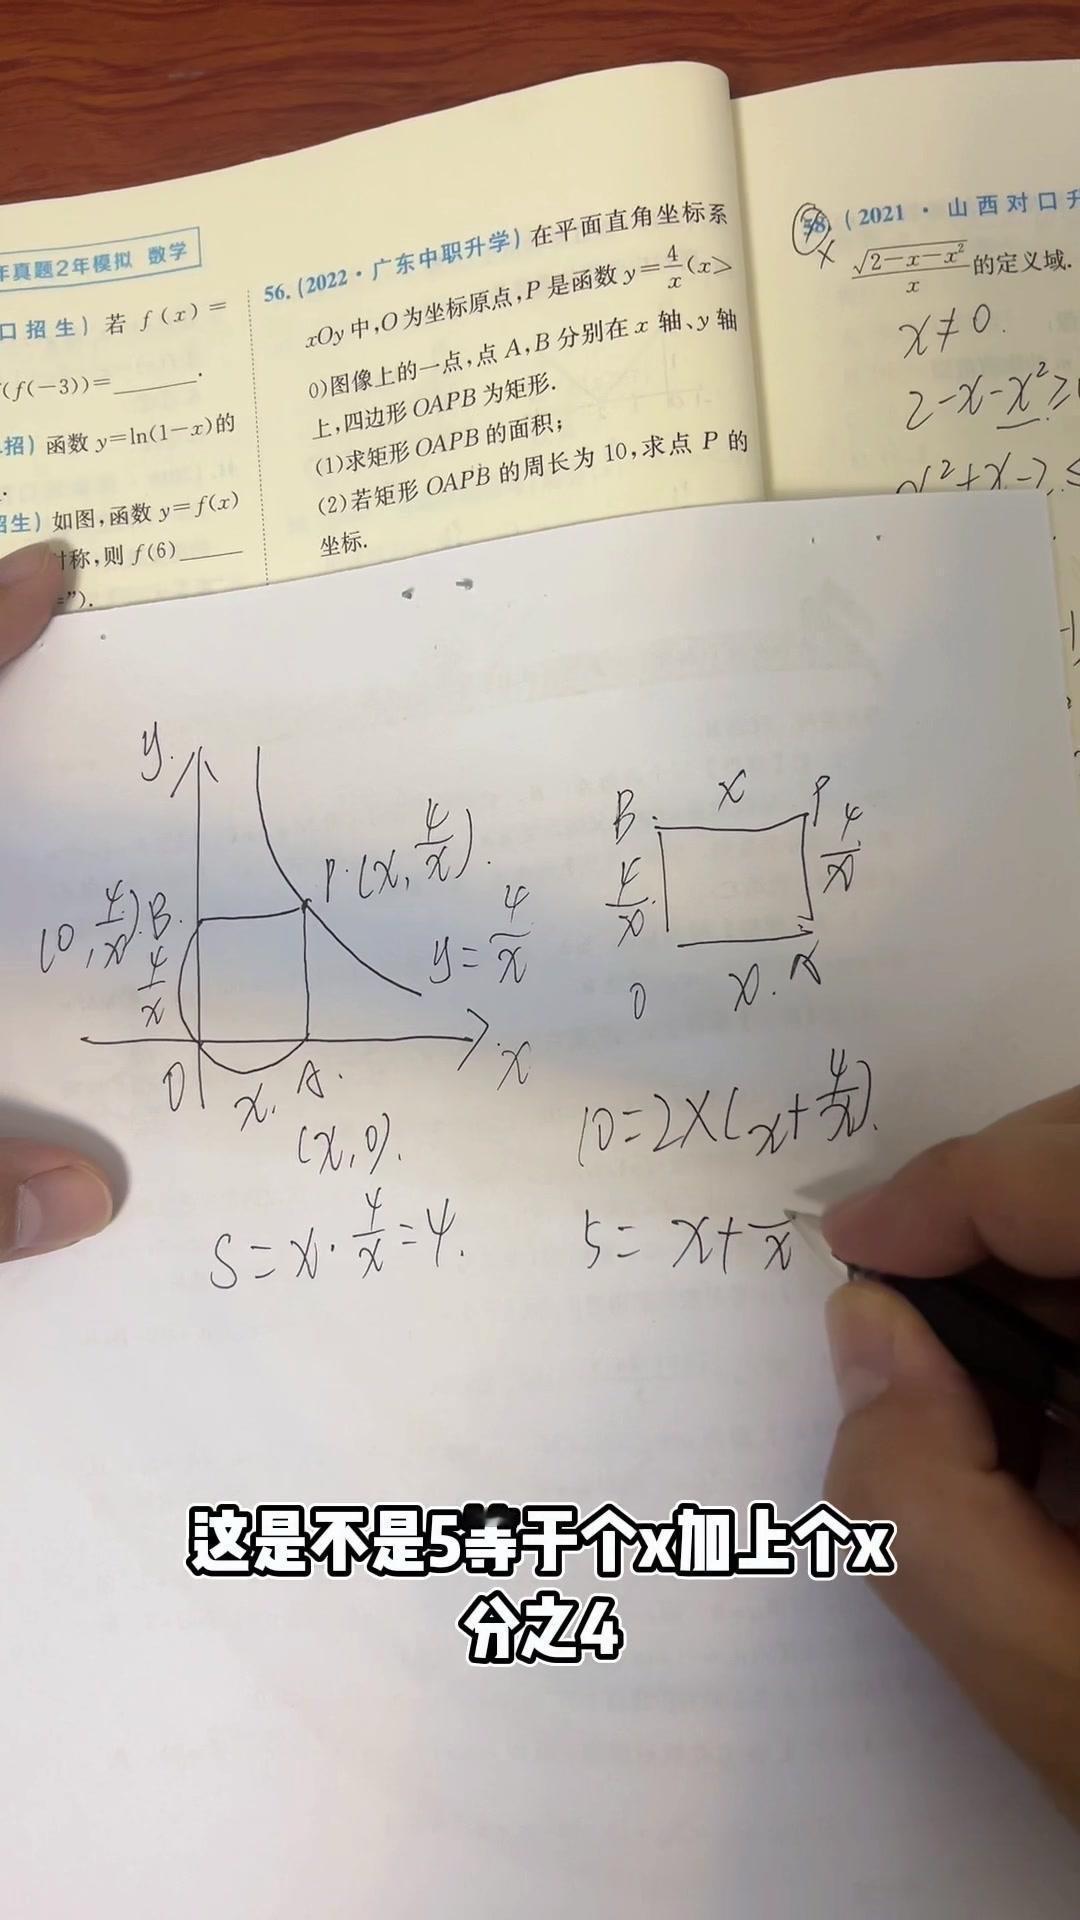 年真题2年模拟 数学
口招生) 若 f(x)=
f(f(-3))=______.
招) 函数 y=ln(1-x)的
招生) 如图,函数 y=f(x)
对称,则 f(6)______
=").
56.(2022·广东中职升学) 在平面直角坐标系
xOy 中,O 为坐标原点,P 是函数 y=4/x (x>
0)图像上的一点,点 A,B 分别在 x 轴、y 轴
上,四边形 OAPB 为矩形.
(1)求矩形 OAPB 的面积;
(2)若矩形 OAPB 的周长为 10,求点 P 的
坐标.
58. (2021·山西对口升
√(2-x-x²)/x 的定义域.
x≠0.
2-x-x²≥
x²+x-2≤
y.
P.(x, 4/x).
(0, 4/x).B.
4/x
y=4/x
O
x. A.
x
(x,0).
S=x·4/x=4.
x
B. P
4/x. 4/x
O x. A
10=2×(x+4/x).
5=x+—x
这是不是5等于个x加上个x
分之4